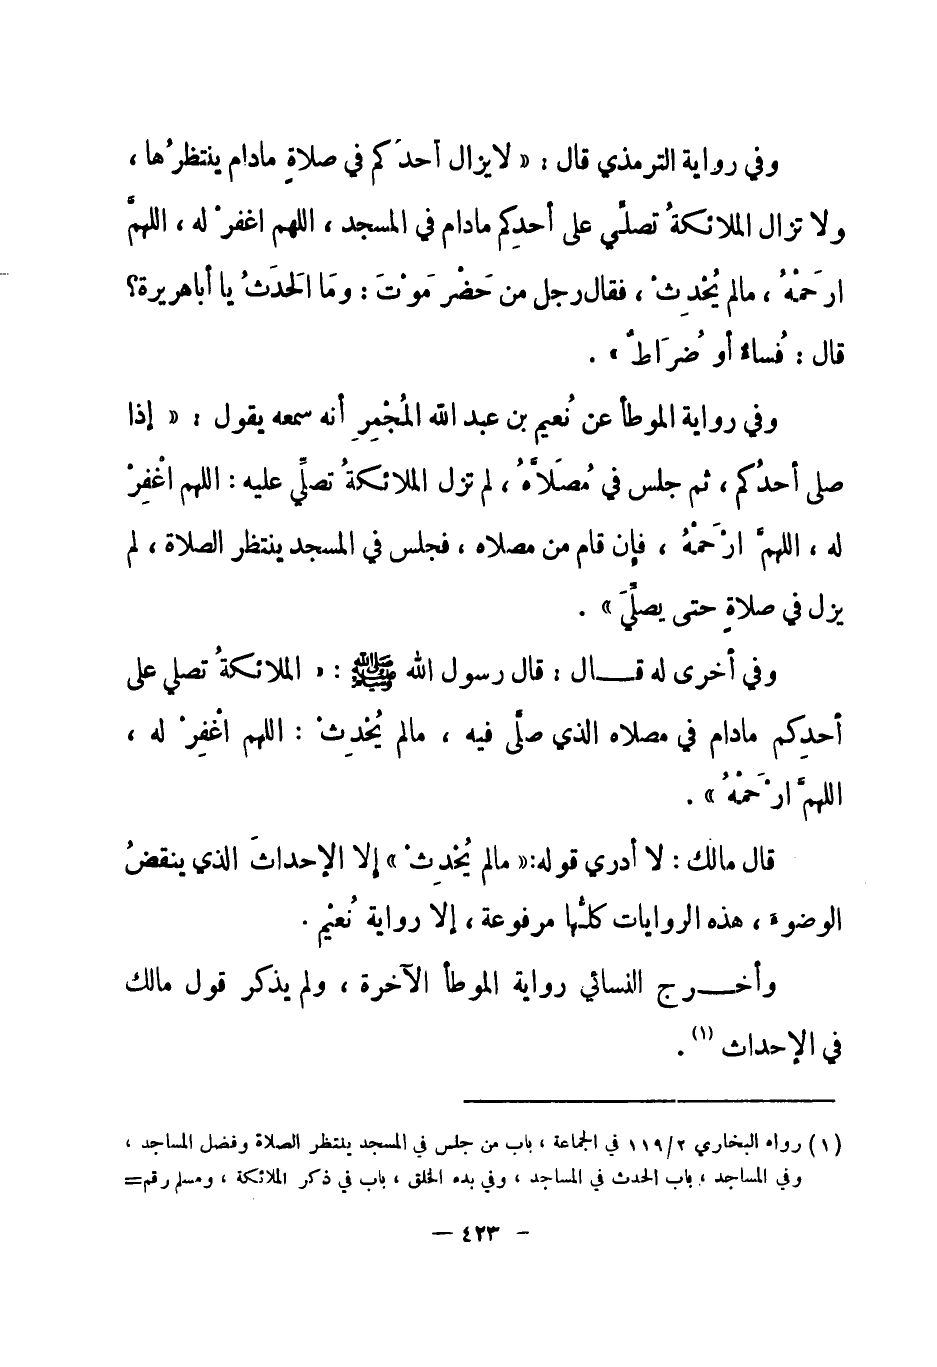 وفي رواية الترمذي قال : « لا يزال أحدُكم في صلاةٍ مادام ينتظرُها ،
ولا تزال الملائكةُ تصلِّي على أحدِكم مادام في المسجد ، اللهم اغفرْ له ، اللهمَّ
ارحَمْهُ ، مالم يُحْدِثْ ، فقال رجل من حَضْرَمَوْتَ : ومَا الحَدَثُ يا أبا هريرة؟
قال : فُساءٌ أو ضُرَاطٌ » .
وفي رواية الموطأ عن نُعيم بن عبد الله المُجْمِرِ أنه سمعه يقول : « إذا
صلى أحدُكم ، ثم جلس في مُصَلاَّهُ ، لم تزل الملائكةُ تصلِّي عليه : اللهم اغْفِرْ
له ، اللهمَّ ارْحَمْهُ ، فإن قام من مصلاه ، فجلس في المسجد ينتظر الصلاة ، لم
يزل في صلاةٍ حتى يصلِّيَ » .
وفي أخرى له قـــال : قال رسول الله ﷺ : « الملائكةُ تصلي على
أحدِكم مادام في مصلاه الذي صلَّى فيه ، مالم يُحْدِثْ : اللهم اغْفِرْ له ،
اللهمَّ ارْحَمْهُ » .
قال مالك : لا أدري قوله:« مالم يُحْدِثْ » إلا الإحداثَ الذي ينقضُ
الوضوءَ ، هذه الروايات كلُّها مرفوعة ، إلا رواية نُعَيْم .
وأخـــرج النسائي رواية الموطأ الآخرة ، ولم يذكر قول مالك
في الإحداث (١) .
(١) رواه البخاري ١١٩/٢ في الجماعة ، باب من جلس في المسجد ينتظر الصلاة وفضل المساجد ،
وفي المساجد ، باب الحدث في المساجد ، وفي بدء الخلق ، باب في ذكر الملائكة ، ومسلم رقم=
- ٤٢٣ —